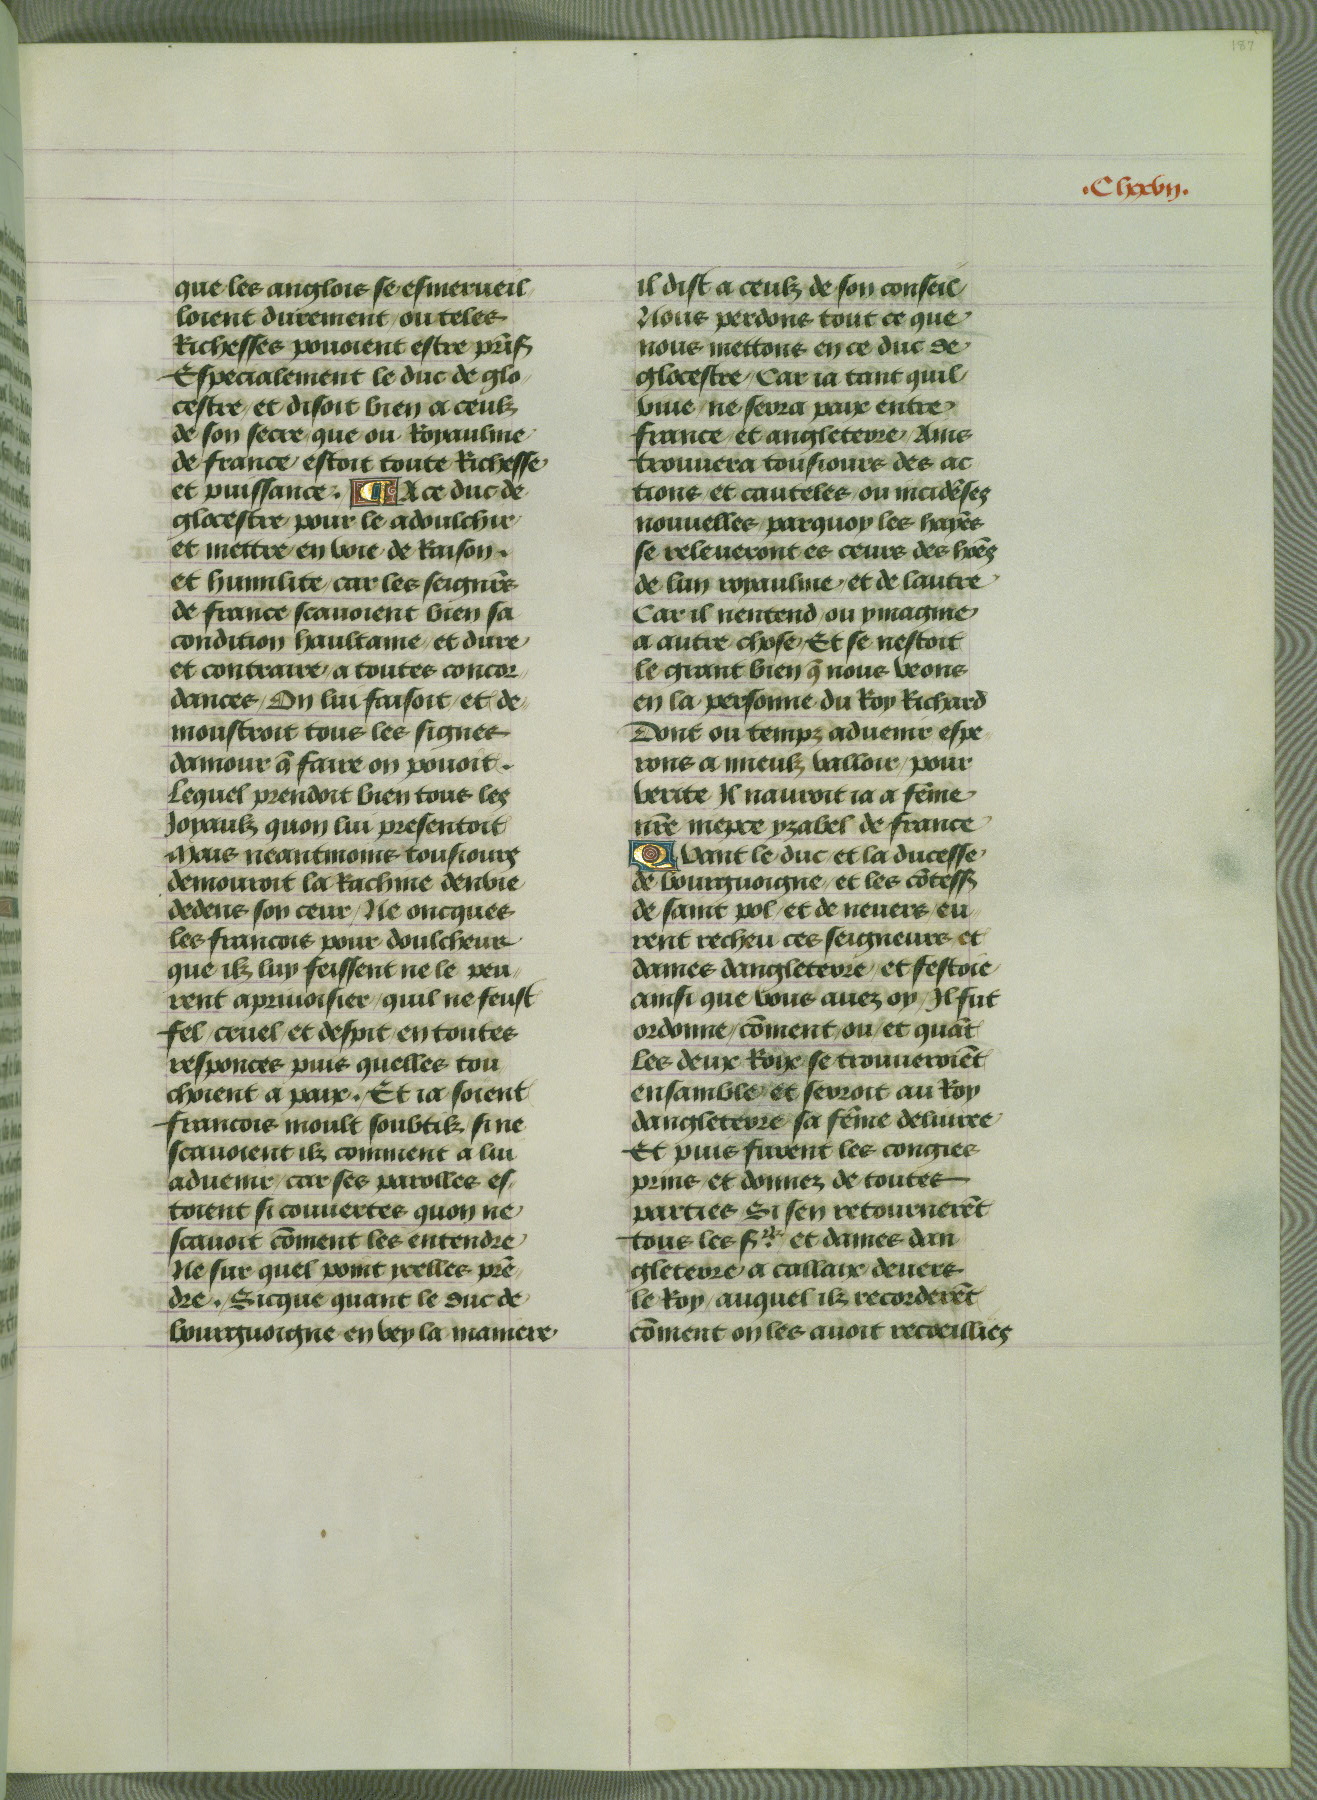 187
.Clxxvii.
que les anglois se esmerueil
loient durement / ou teles
Richesses pouoient estre prīs
Especialement le duc de glo
cestre / et disoit bien a ceulz
de son secre que ou Royaulme
de france estoit toute Richesse
et puissance . ¶ A ce duc de
glocestre pour le adoulchir
et mettre en voie de Raison .
et humilite / car les seignrs̄
de france scauoient bien sa
condition haultaine et dure
et contraire a toutes concor
dances / On lui faisoit / et de
monstroit tous les signes
damour q̄ faire on pouoit .
Lequel prendoit bien tous les
Joyaulz quon lui presentoit
Mais neantmoins tousiours
demouroit la Rachine denuie
dedens son ceur / Ne oncques
les francois pour doulcheur
que ilz luy feissent ne le peu
rent apriuoisier / quil ne feust
fel / cruel et despit en toutes
responces puis quelles tou
choient a paix . Et ia soient
francois moult soubtilz si ne
scauoient ilz comment a lui
aduenir / car ses parolles es
toient si couuertes quon ne
scauoit cōment les entendre
Ne sur quel point ycelles prē
dre . Sicque quant le duc de
bourguoigne en vey la maniere
il dist a ceulz de son conseil
Nous perdons tout ce que
nous mettons en ce duc de
glocestre / Car ia tant quil
viue / ne sera paix entre
france et angleterre / Ains
trouuera tousiours des ac
tions et cauteles ou incidēses
nouuelles / parquoy les hayēs
se releueront es ceurs des hōēs
de lun royaulme et de lautre
Car il nentend ou ymagine
a autre chose / Et se nestoit
le grant bien q̄ nous veons
en la personne du Roy Richard
Dont ou temps aduenir espe
rons a mieulz valloir / pour
verite Il nauroit ia a fēme
nrē niepce yzabel de france
Quant le duc et la ducesse
de bourguoigne / et les cōtesss
de saint pol / et de neuers eu
rent recheu ces seigneurs et
dames dangleterre / et festoie
ainsi que vous auez oy / Il fut
ordonne / cōment / ou / et quāt
les deux Roys se trouueroiēt
ensamble / et seroit au Roy
dangleterre sa fēme deliuree
Et puis furent les congies
prins et donnez de toutes
parties / Si sen retournerēt
tous les srs et dames dan
gleterre a callaix deuers
le Roy / auquel ilz recorderēt
cōment on les auoit recoeillies